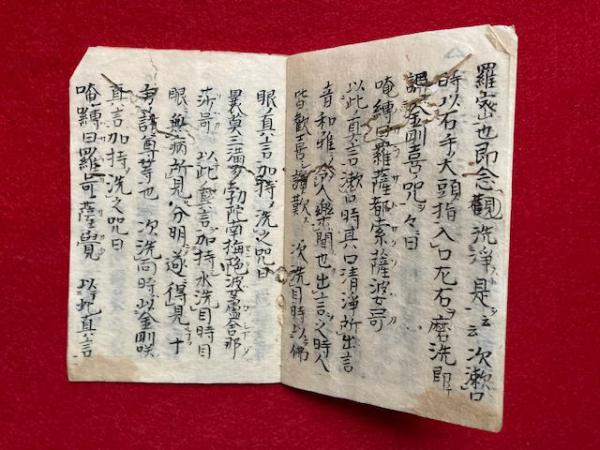 羅密也即念觀洗浄是云云 次漱口
時以右手大頭指入口左右磨洗即
誦金剛喜咒々曰
唵縛日羅薩都索薩波女哥
以此真言漱口時真口清浄所出言
音和雅令人樂聞也出言之時人
皆歡喜之讃歎 次洗目時以佛
眼真言加持洗之咒曰
曩莫三滿多勃陀南梅陀波
莎哥 以此真言加持水洗目時目
眼無病所見分明遂得見十
方諸尊等也 次洗面時以金剛咲
真言加持洗之咒曰
唵縛日羅賀薩覺 以此真言